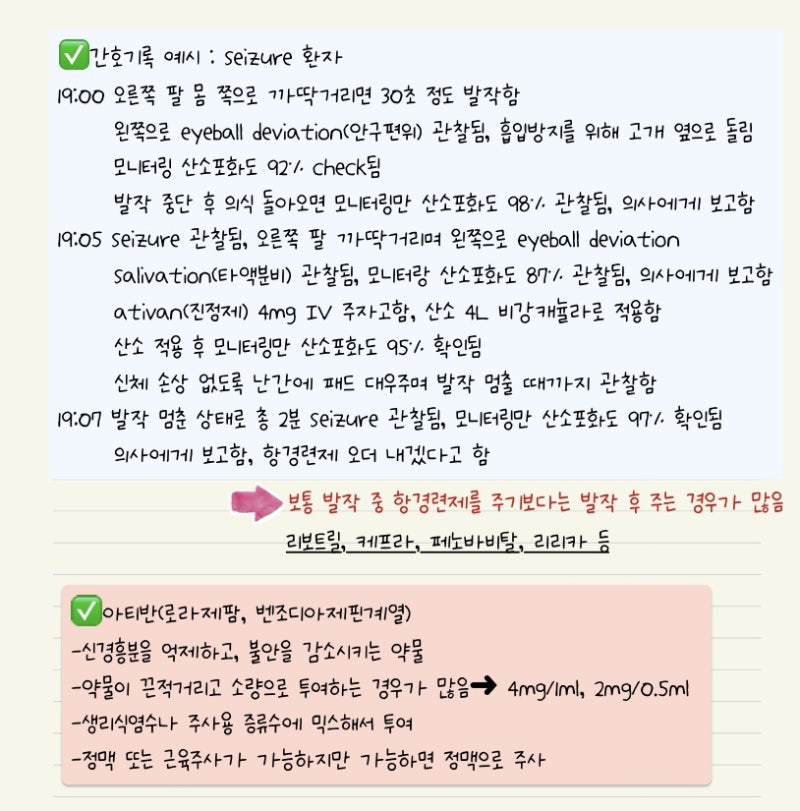 ✅간호기록 예시 : seizure 환자
19:00 오른쪽 팔 몸 쪽으로 까딱거리면 30초 정도 발작함
왼쪽으로 eyeball deviation(안구편위) 관찰됨, 흡입방지를 위해 고개 옆으로 돌림
모니터링 산소포화도 92% check됨
발작 중단 후 의식 돌아오면 모니터링만 산소포화도 98% 관찰됨, 의사에게 보고함
19:05 seizure 관찰됨, 오른쪽 팔 까딱거리며 왼쪽으로 eyeball deviation
salivation(타액분비) 관찰됨, 모니터랑 산소포화도 87% 관찰됨, 의사에게 보고함
ativan(진정제) 4mg IV 주자고함, 산소 4L 비강캐뉼라로 적용함
산소 적용 후 모니터링만 산소포화도 95% 확인됨
신체 손상 없도록 난간에 패드 대우주며 발작 멈출 때까지 관찰함
19:07 발작 멈춘 상태로 총 2분 seizure 관찰됨, 모니터링만 산소포화도 97% 확인됨
의사에게 보고함, 항경련제 오더 내겠다고 함
보통 발작 중 항경련제를 주기보다는 발작 후 주는 경우가 많음
리보트릴, 케프라, 페노바비탈, 리리카 등
✅아티반(로라제팜, 벤조디아제핀계열)
-신경흥분을 억제하고, 불안을 감소시키는 약물
-약물이 끈적거리고 소량으로 투여하는 경우가 많음→ 4mg/1ml, 2mg/0.5ml
-생리식염수나 주사용 증류수에 믹스해서 투여
-정맥 또는 근육주사가 가능하지만 가능하면 정맥으로 주사